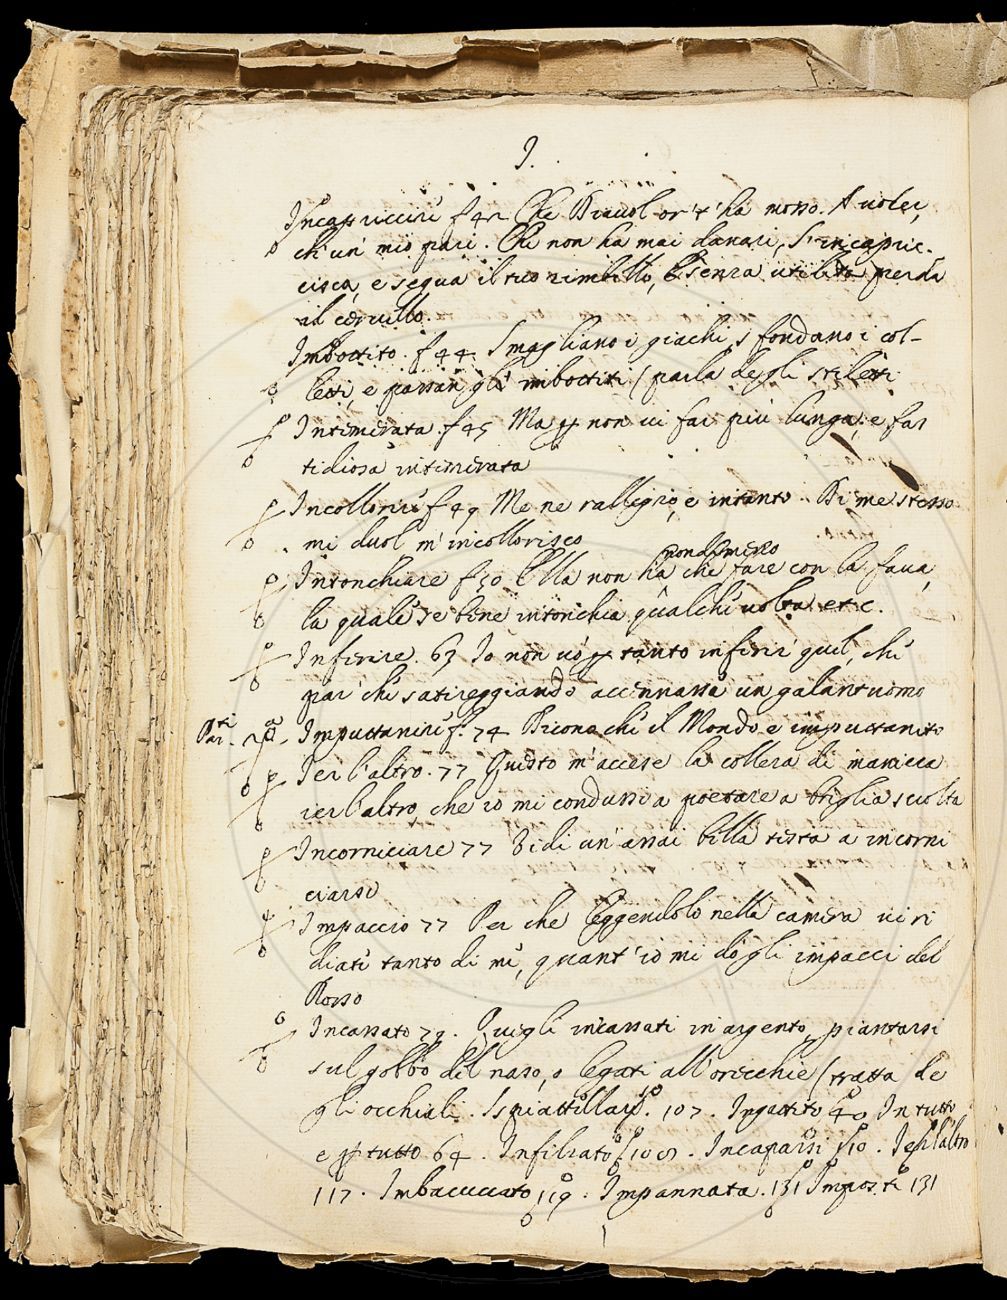 I.
Incapriccire f 42 Che Diavol or t'ha mosso. A voler,
ch'un mio pari. Che non ha mai danari, s'incapric-
cisca, e segua il tuo zimbello, E senza utilità perda
il cervello.
Imbottito. f 44 Smagliano i giachi, sfondano i col-
letti, e passan gli imbottiti (parla degli stiletti
Intemerata. f 45 Ma p non vi far più lunga, e fas
tidiosa intemerata
Incollorire f 49 Me ne rallegro, e intanto Di me stesso
mi duol m'incollorisco
nondimeno
Intonchiare f 50 Ella non ha che fare con la fava,
la quale se bene intonchia qualche volta etc.
Inferire. 63 Io non vò p tanto inferir quel, che
par che satireggiando accennasse un galantuomo
Par.ti Imputtanire f. 74 Dicono che il Mondo è imputtanito
Ier l'altro. 77 Questo m'accese la collera di maniera
ier l'altro, che io mi condussi a poetare a briglia sciolta
Incorniciare 77 Vidi un'assai bella testa a incorni
ciarsi
Impaccio 77 Per che leggendolo nella camera vi ri
diate tanto di me, quant'io mi do gli impacci del
Rosso
Incassato 79. Quegli incassati in argento, piantarsi
sul gobbo del naso, o legati all'orecchie (tratta de
gli occhiali. 107. In tutto
e p tutto 64. Infilzato. Incaparsi f 10. Ier l'altro
117. Imbacuccato 119. Impannata. 131 Imposte 131